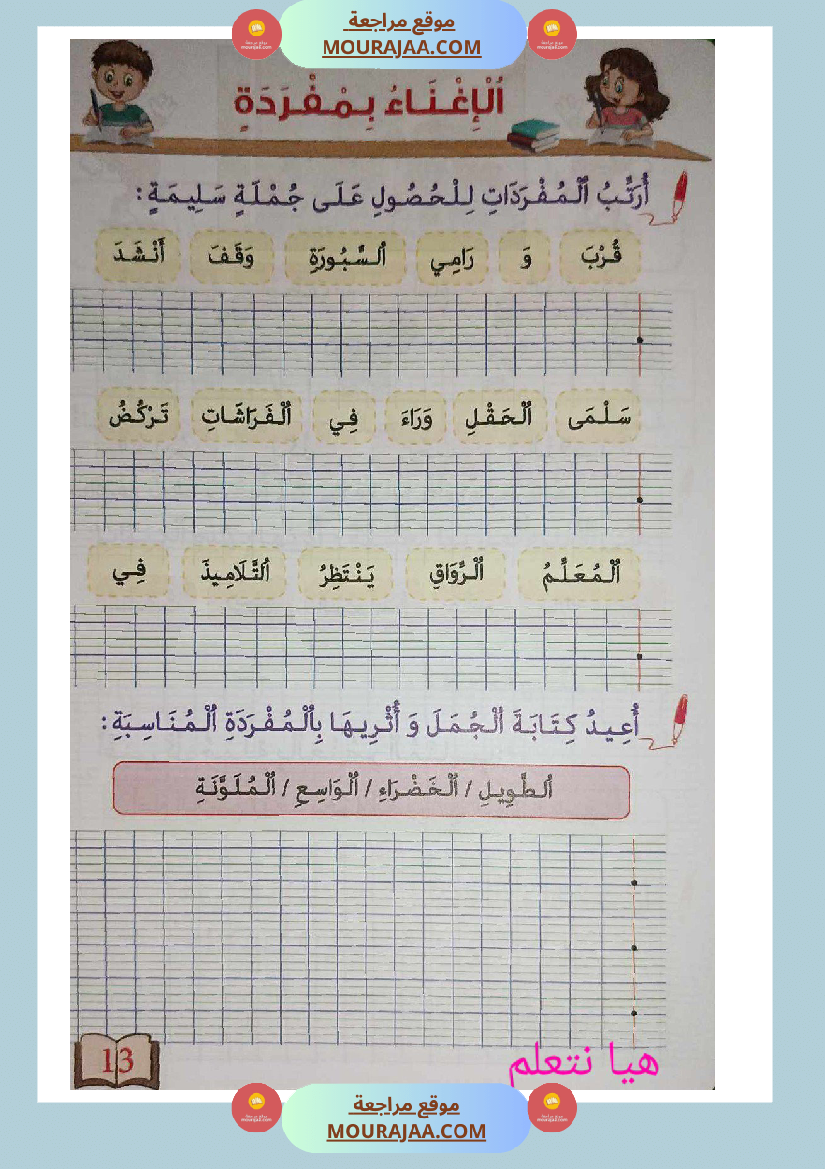 موقع مراجعة
MOURAJAA.COM
اُلْإِغْنَاءُ بِمْفْرَدَةٍ
أُرَتِّبُ اُلْمُفْرَدَاتِ لِلْحُصُولِ عَلَى جُمْلَةٍ سَلِيمَةٍ :
قُرْبَ وَ رَامِي اُلسَّبُورَةِ وَقَفَ أَنْشَدَ
سَلْمَى اُلْحَقْلِ وَرَاءَ فِي اُلْفَرَاشَاتِ تَرْكُضُ
اُلْمُعَلِّمُ اُلْرَّوَاقِ يَنْتَظِرُ اُلتَّلَامِيذَ فِي
أُعِيدُ كِتَابَةَ اُلْجُمَلَ وَ أُثْرِيهَا بِاُلْمُفْرَدَةِ اُلْمُنَاسِبَةِ :
اُلطَّوِيلِ / اُلْخَضْرَاءِ / اُلْوَاسِعِ / اُلْمُلَوَّنَةِ
هيا نتعلم
13
موقع مراجعة
MOURAJAA.COM